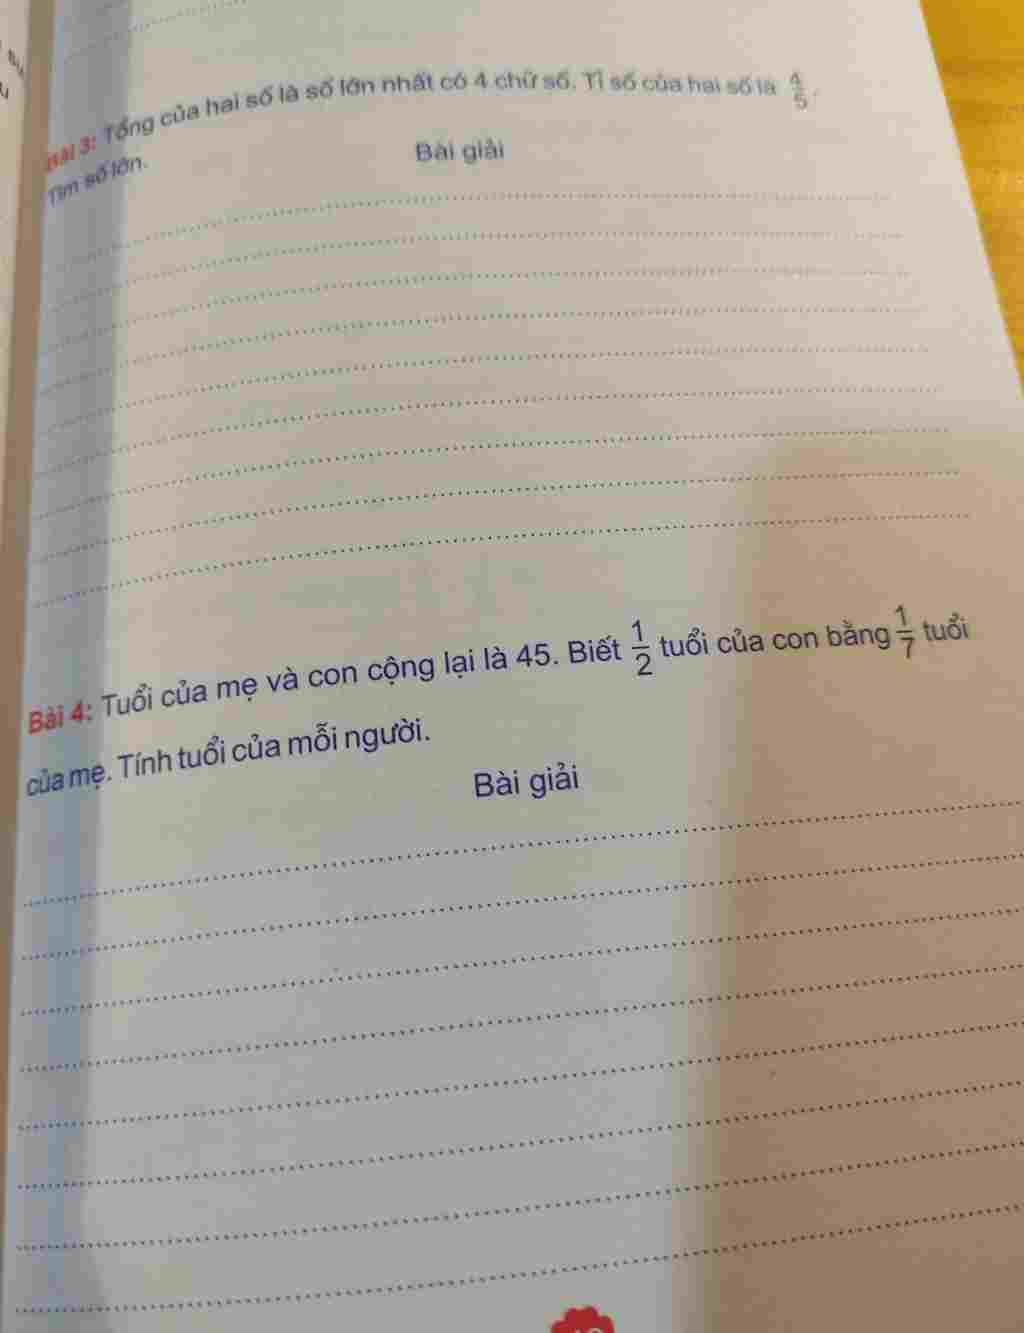 Bài 3: Tổng của hai số là số lớn nhất có 4 chữ số. Tỉ số của hai số là 4/5.
Tìm số lớn.
Bài giải
Bài 4: Tuổi của mẹ và con cộng lại là 45. Biết 1/2 tuổi của con bằng 1/7 tuổi
của mẹ. Tính tuổi của mỗi người.
Bài giải